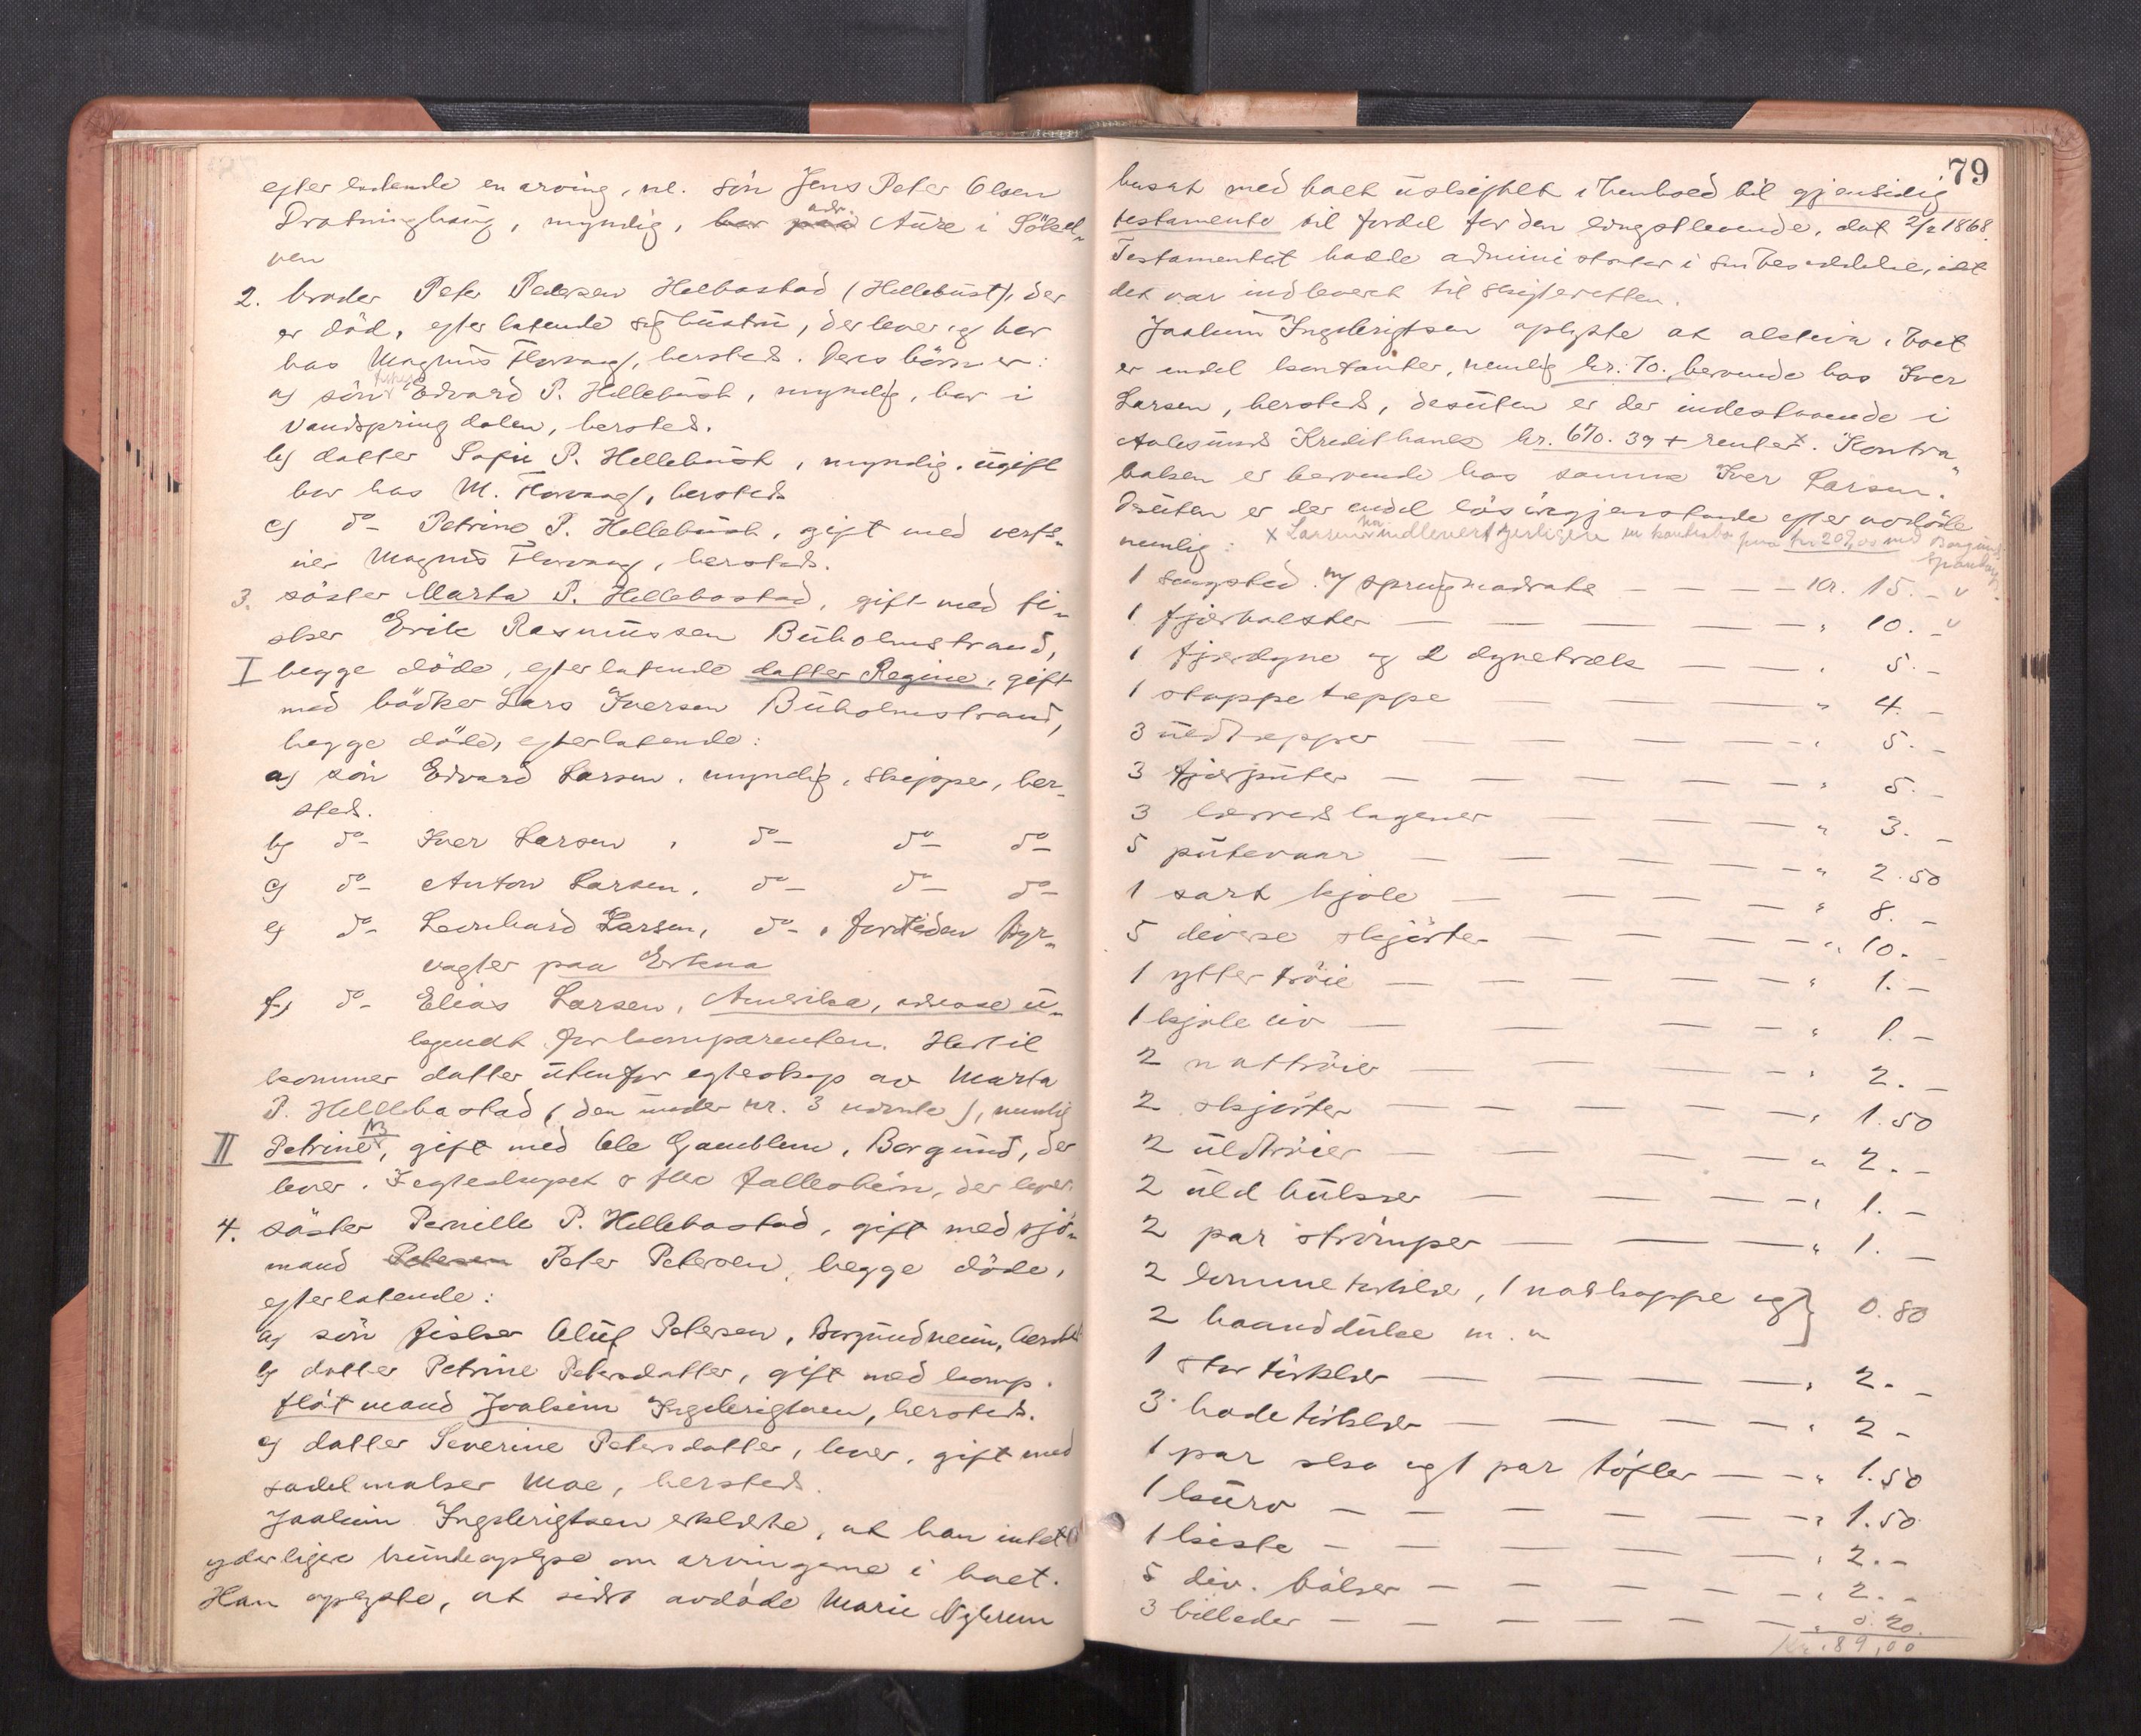 efterlatende en arving, nl. sön Jens Peter Olsen
Dratninghaug, myndig, bor paa adr. Aure i Sökel-
ven
2. broder Peter Pedersen Helbostad (Hellebust), der
er död, efterlatende sig hustru, der lever og bor
hos Magnus Florvaag, hersteds. Deres börn er:
a) sön fisker Edvard P. Hellebust, myndig, bor i
Vandspringdalen, hersteds.
b) datter Sofie P. Hellebust, myndig, ugift
bor hos M. Florvaag, hersteds
c) do Petrine P. Hellebust, gift med verts-
eier Magnus Florvaag, hersteds.
3. söster Marta P. Hellebostad, gift med fi-
sker Erik Rasmussen Buholmstrand,
I begge döde, efterlatende datter Regine, gift
med bödker Lars Iversen Buholmstrand,
begge döde, efterlatende:
a) sön Edvard Larsen, myndig, skipper, her-
steds.
b) do Iver Larsen, do do do
c) do Anton Larsen, do do do
e) do Leonhard Larsen, do, fortiden fyr-
vagter paa Erkna
f) do Elias Larsen, Amerika, adresse u-
kjendt for komparenten. Hertil
kommer datter utenfor egteskap av Marta
P. Hellebastad (den under nr. 3 nævnte), nemlig
II Petrine NB, gift med Ole Gamblem, Borgund, der
lever. I egteskapet er flere fællesbörn, der lever.
4. söster Pernille P. Hellebostad, gift med sjö-
mand Petersen Peter Petersen, begge döde,
efterlatende:
a) sön fisker Oluf Petersen, Borgundveien, hersteds
b) datter Petrine Petersdatter, gift med komp.
flötmand Joakim Ingebrigtsen, hersteds.
c) datter Severine Petersdatter, lever, gift med
sadelmaker Moe, hersteds.
Joakim Ingebrigtsen erklærte, at han intet
yderligere kunde oplyse om arvingerne i boet.
Han oplyste, at sidst avdöde Marie Nybrun
79
husat med hait uskiftet i henhold til gjensidig
testamente til fordel for den længstlevende, dat 2/2 1868.
Testamentet hadde administrator i sin besiddelse, idet
det var indlevert til skifteretten.
Joakim Ingebrigtsen oplyste at aktiva i boet
er endel kontanter, nemlig kr. 70. beroende hos Iver
Larsen, hersteds, desuten er der indestaaende i
Aalesunds Kreditbank kr. 670.39 + renter x. Kontra-
boken er beroende hos samme Iver Larsen.
Desuten er der endel lösöregjenstande efter avdöde
nemlig: x Larsen har indlevert yderligere en kontrabok paa kr 207,00 ved Borgunds Sparebank.
1 sengsted m/ springmadrats — kr. 15. -
1 fjærbolster — " 10. -
1 fjærdyne og 2 dynetræk — " 5. -
1 stoppeteppe — " 4. -
3 uldtepper — " 5. -
3 fjærputer — " 5. -
3 lærredslagener — " 3. -
5 putevaar — " 2.50
1 sort kjole — " 8. -
5 diverse skjörter — " 10. -
1 yttertröie — " 1. -
1 kjoleliv — " 1. -
2 nattröier — " 2. -
2 skjorter — " 1.50
2 uldtröier — " 2. -
2 uld bukser — " 1. -
2 par strömper — " 1. -
2 lommetörklær, 1 natkappe og
2 haandduke m. m } 0.80
1 stor törklær — " 2. -
3 hodetörklær — " 2 -
1 par sko og 1 par töfler — " 1.50
1 kurv — " 1.50
1 kiste — " 2. -
5 div. böker — " 2. -
3 billeder — " 0.20.
Kr. 89,00